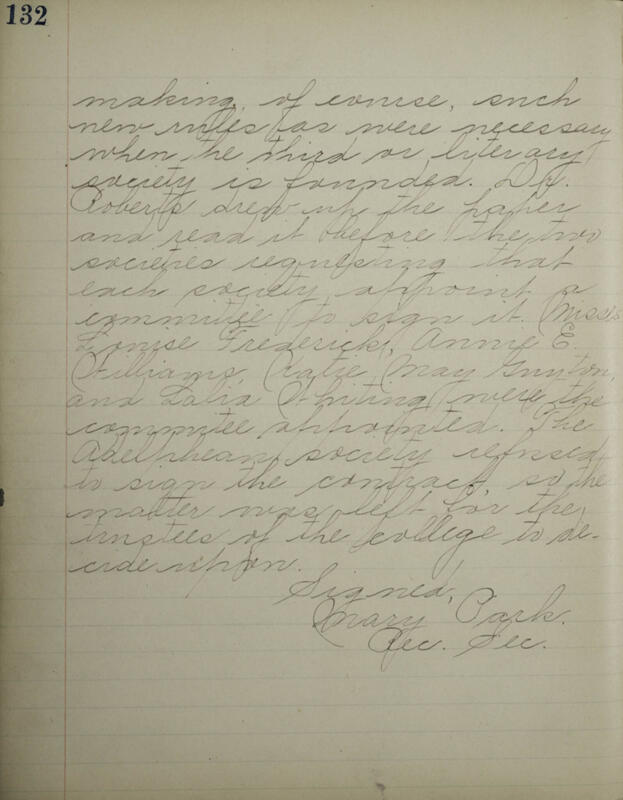 132
making, of course, such
new rules as were necessary
when the third or literary
society is founded. Dr.
Roberts drew up the paper
and read it before the two
societies requesting that
each society appoint a
committee to sign it. Misses
Louise Frederick, Annie E.
Williams, Katie May Guyton,
and Lalia Whiting were the
committee appointed. The
Adelphean society refused
to sign the contract, so the
matter was left for the
trustees of the college to de-
cide upon.
Signed,
Mary Park.
Rec. Sec.